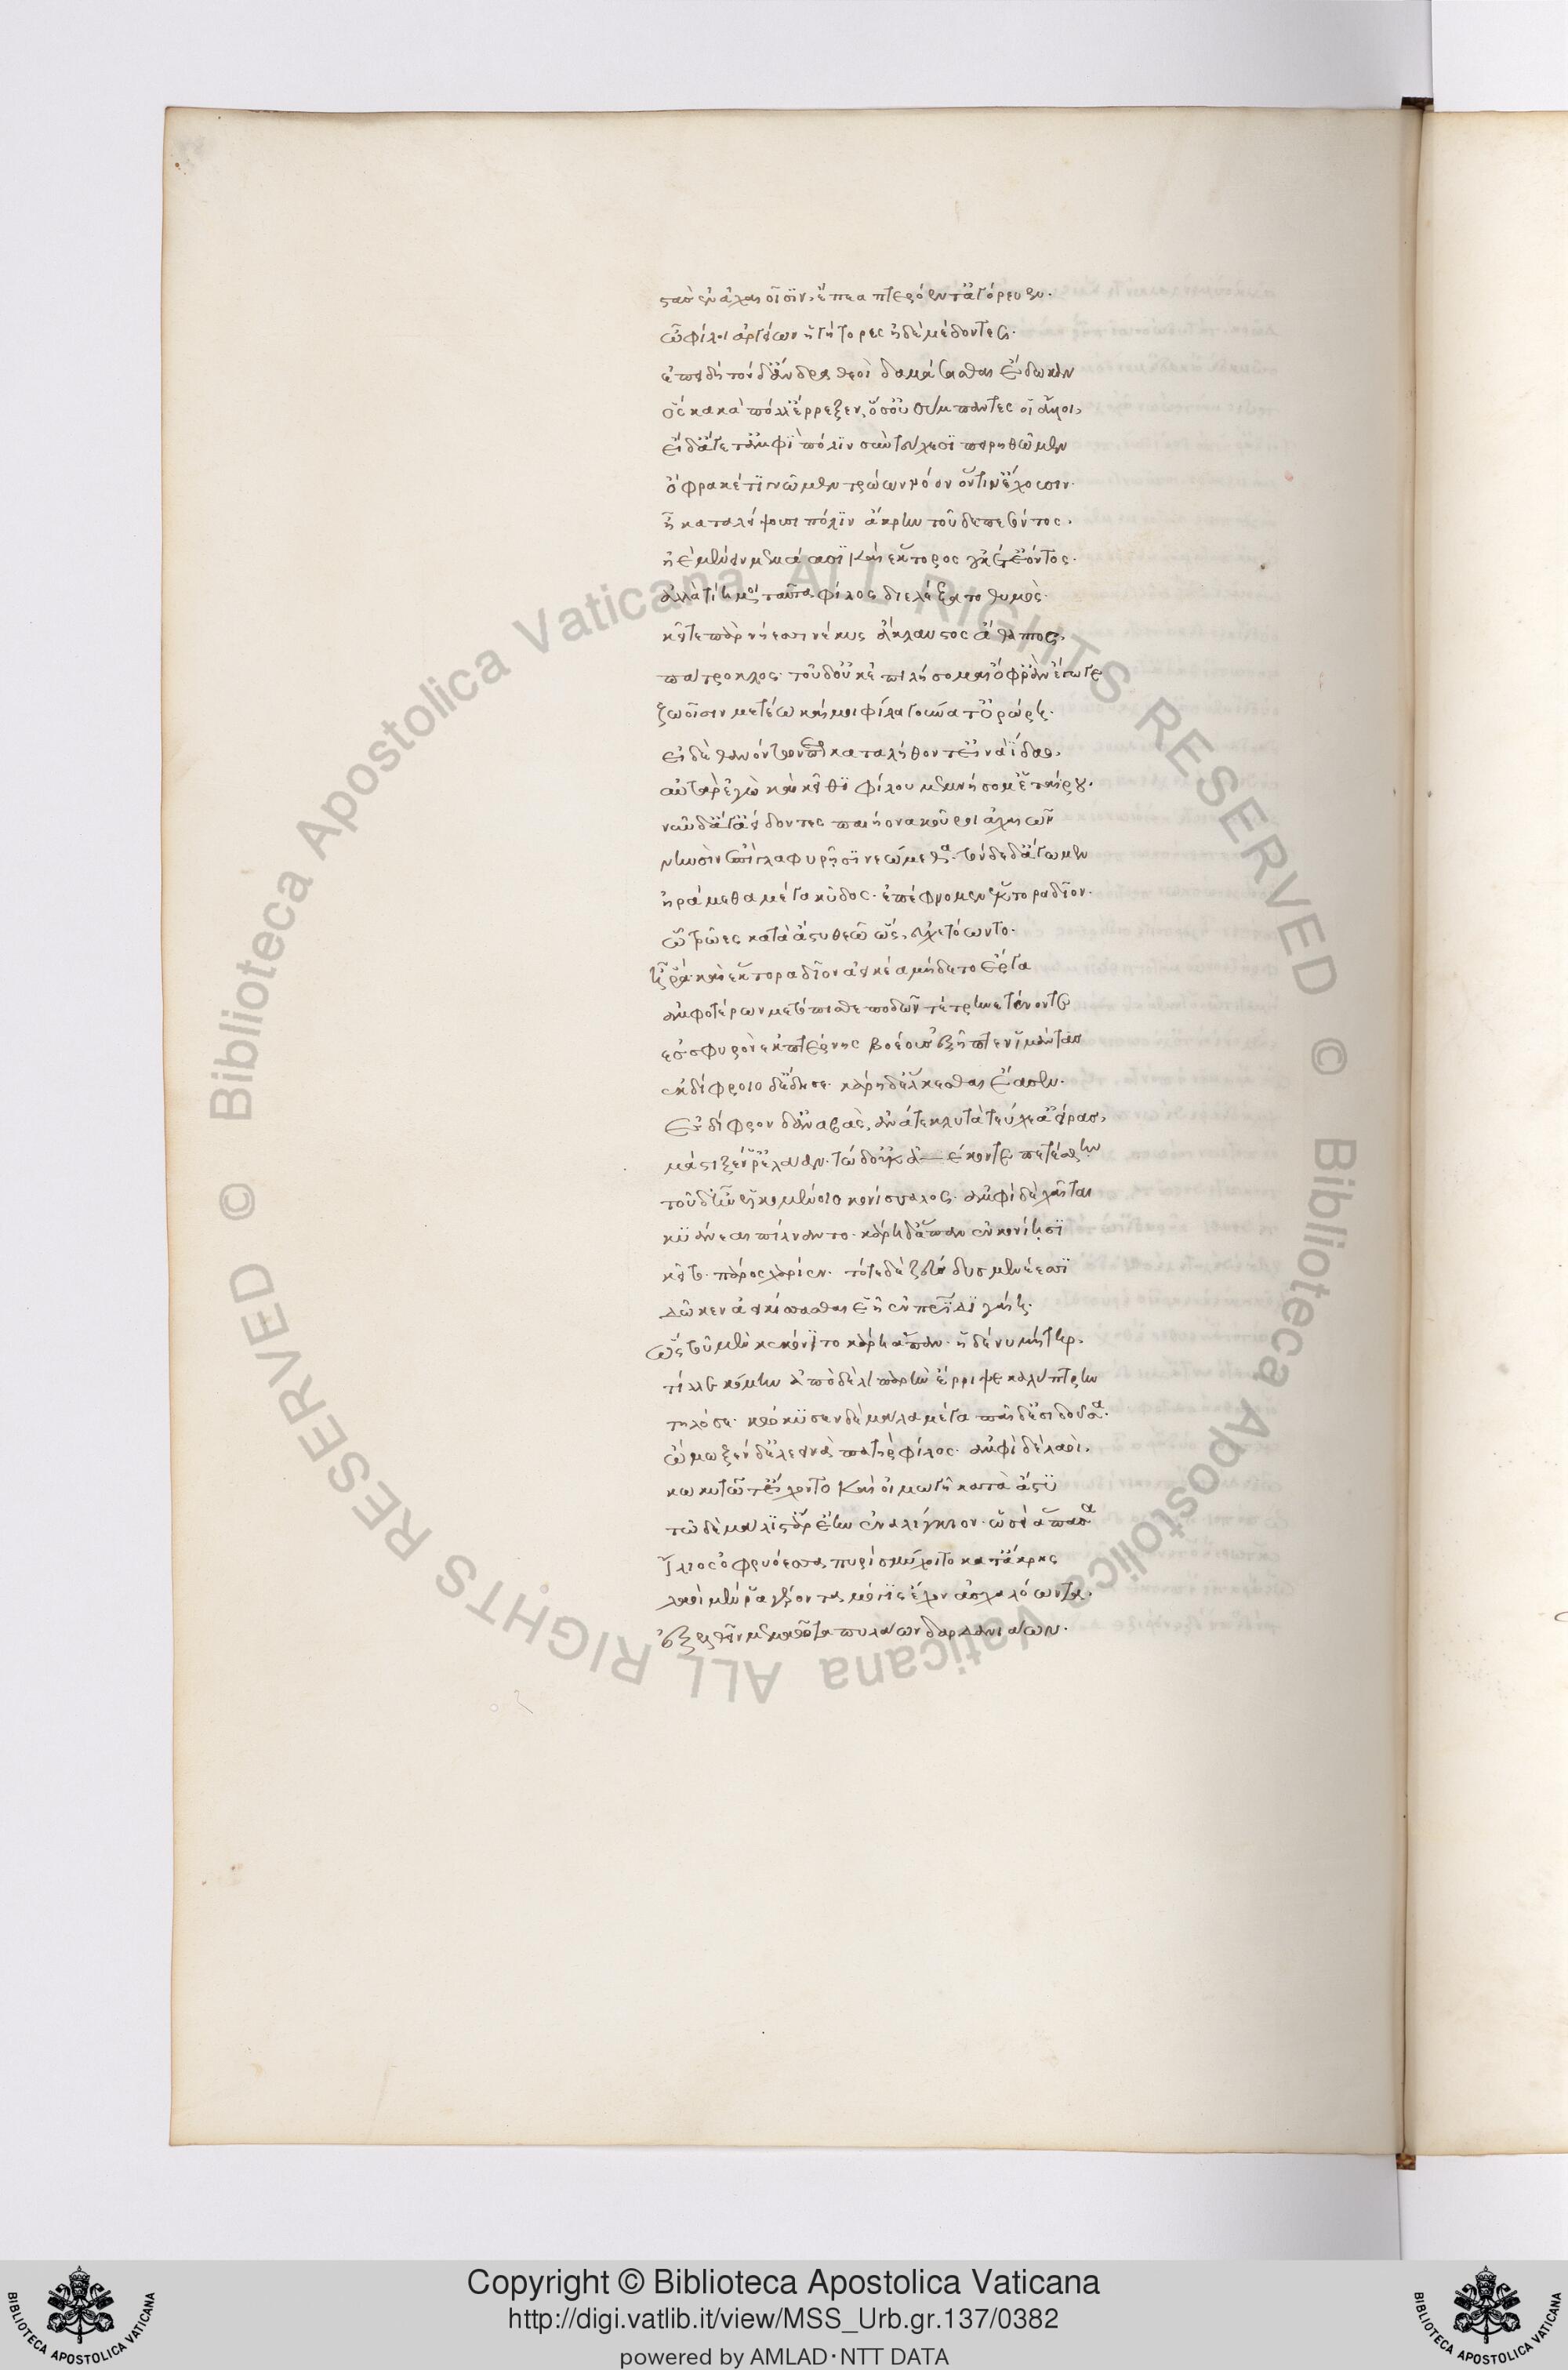 στὰς ἐν ἀχαιοῖσιν, ἔπεα πτερόεντ' ἀγόρευεν.
ὦ φίλοι ἀργείων ἡγήτορες ἠδὲ μέδοντες.
ἐπειδὴ τόνδ' ἄνδρα θεοὶ δαμάσασθαι ἔδωκαν
ὃς κακὰ πόλλ' ἔρρεξεν, ὅσ' οὐ σύμπαντες οἱ ἄλλοι,
εἰ δ' ἄγετ' ἀμφὶ πόλιν σὺν τεύχεσι πειρηθῶμεν
ὄφρα κέ τι γνῶμεν τρώων νόον ὅντιν' ἔχουσιν.
ἢ καταλείψουσι πόλιν ἄκρην τοῦδε πεσόντος.
ἠὲ μένειν μεμάασι καὶ ἕκτορος οὐκέτ' ἐόντος.
ἀλλὰ τίη μοι ταῦτα φίλος διελέξατο θυμός.
κεῖται πὰρ νήεσσι νέκυς ἄκλαυτος ἄθαπτος,
πάτροκλος· τοῦδ' οὐκ ἐπιλήσομαι ὄφρ' ἂν ἔγωγε
ζωοῖσιν μετέω καί μοι φίλα γούνατ' ὀρώρῃ.
εἰ δὲ θανόντων περ καταλήθοντ' εἰν ἀΐδαο,
αὐτὰρ ἐγὼ καὶ κεῖθι φίλου μεμνήσομ' ἑταίρου.
νῦν δ' ἄγ' ἀείδοντες παιήονα κοῦροι ἀχαιῶν
νηυσὶν ἐπὶ γλαφυρῇσι νεώμεθα. τόνδε δ' ἄγωμεν
ἠράμεθα μέγα κῦδος· ἐπέφνομεν ἕκτορα δῖον.
ᾧ τρῶες κατὰ ἄστυ θεῷ ὣς, εὐχετόωντο.
ἦ ῥά· καὶ ἕκτορα δῖον ἀεικέα μήδετο ἔργα
ἀμφοτέρων μετόπισθε ποδῶν τέτρηνε τένοντε
ἐς σφυρὸν ἐκ πτέρνης βοέους δ' ἐξῆπτεν ἱμάντας
ἐκ δίφροιο δ' ἔδησε· κάρη δ' ἕλκεσθαι ἔασεν.
ἐς δίφρον δ' ἀναβὰς, ἀνά τε κλυτὰ τεύχε' ἀείρας,
μάστιξέν ῥ' ἐλάαν· τὼ δ' οὐκ ἀέκοντε πετέσθην
τοῦ δ' ἦν ἑλκομένοιο κονίσαλος· ἀμφὶ δὲ χαῖται
κυάνεαι πίλναντο· κάρη δ' ἅπαν ἐν κονίῃσι
κεῖτο· πάρος χαρίεν· τότε δὲ ζεὺς δυσμενέεσσι
δῶκεν ἀεικίσσασθαι ἑῇ ἐν πατρίδι γαίῃ.
ὣς τοῦ μὲν κεκόνιτο κάρη ἅπαν· ἡ δέ νυ μήτηρ,
τίλλε κόμην ἀπὸ δὲ λιπαρὴν ἔρριψε καλύπτρην
τηλόσε· κώκυσεν δὲ μάλα μέγα παῖδ' ἐσιδοῦσα.
ᾤμωξεν δ' ἐλεεινὰ πατὴρ φίλος· ἀμφὶ δὲ λαοὶ,
κωκυτῷ τ' εἴχοντο καὶ οἰμωγῇ κατὰ ἄστυ
τῷ δὲ μάλιστ' ἄρ' ἔην ἐναλίγκιον· ὡσεὶ ἅπασα
ἴλιος ὀφρυόεσσα πυρὶ σμύχοιτο κατ' ἄκρης
λαοὶ μέν ῥα γέροντα μόγις ἔχον ἀσχαλόωντα.
ἐξελθεῖν μεμαῶτα πυλάων δαρδανιάων.
Copyright © Biblioteca Apostolica Vaticana
http://digi.vatlib.it/view/MSS_Urb.gr.137/0382
powered by AMLAD·NTT DATA